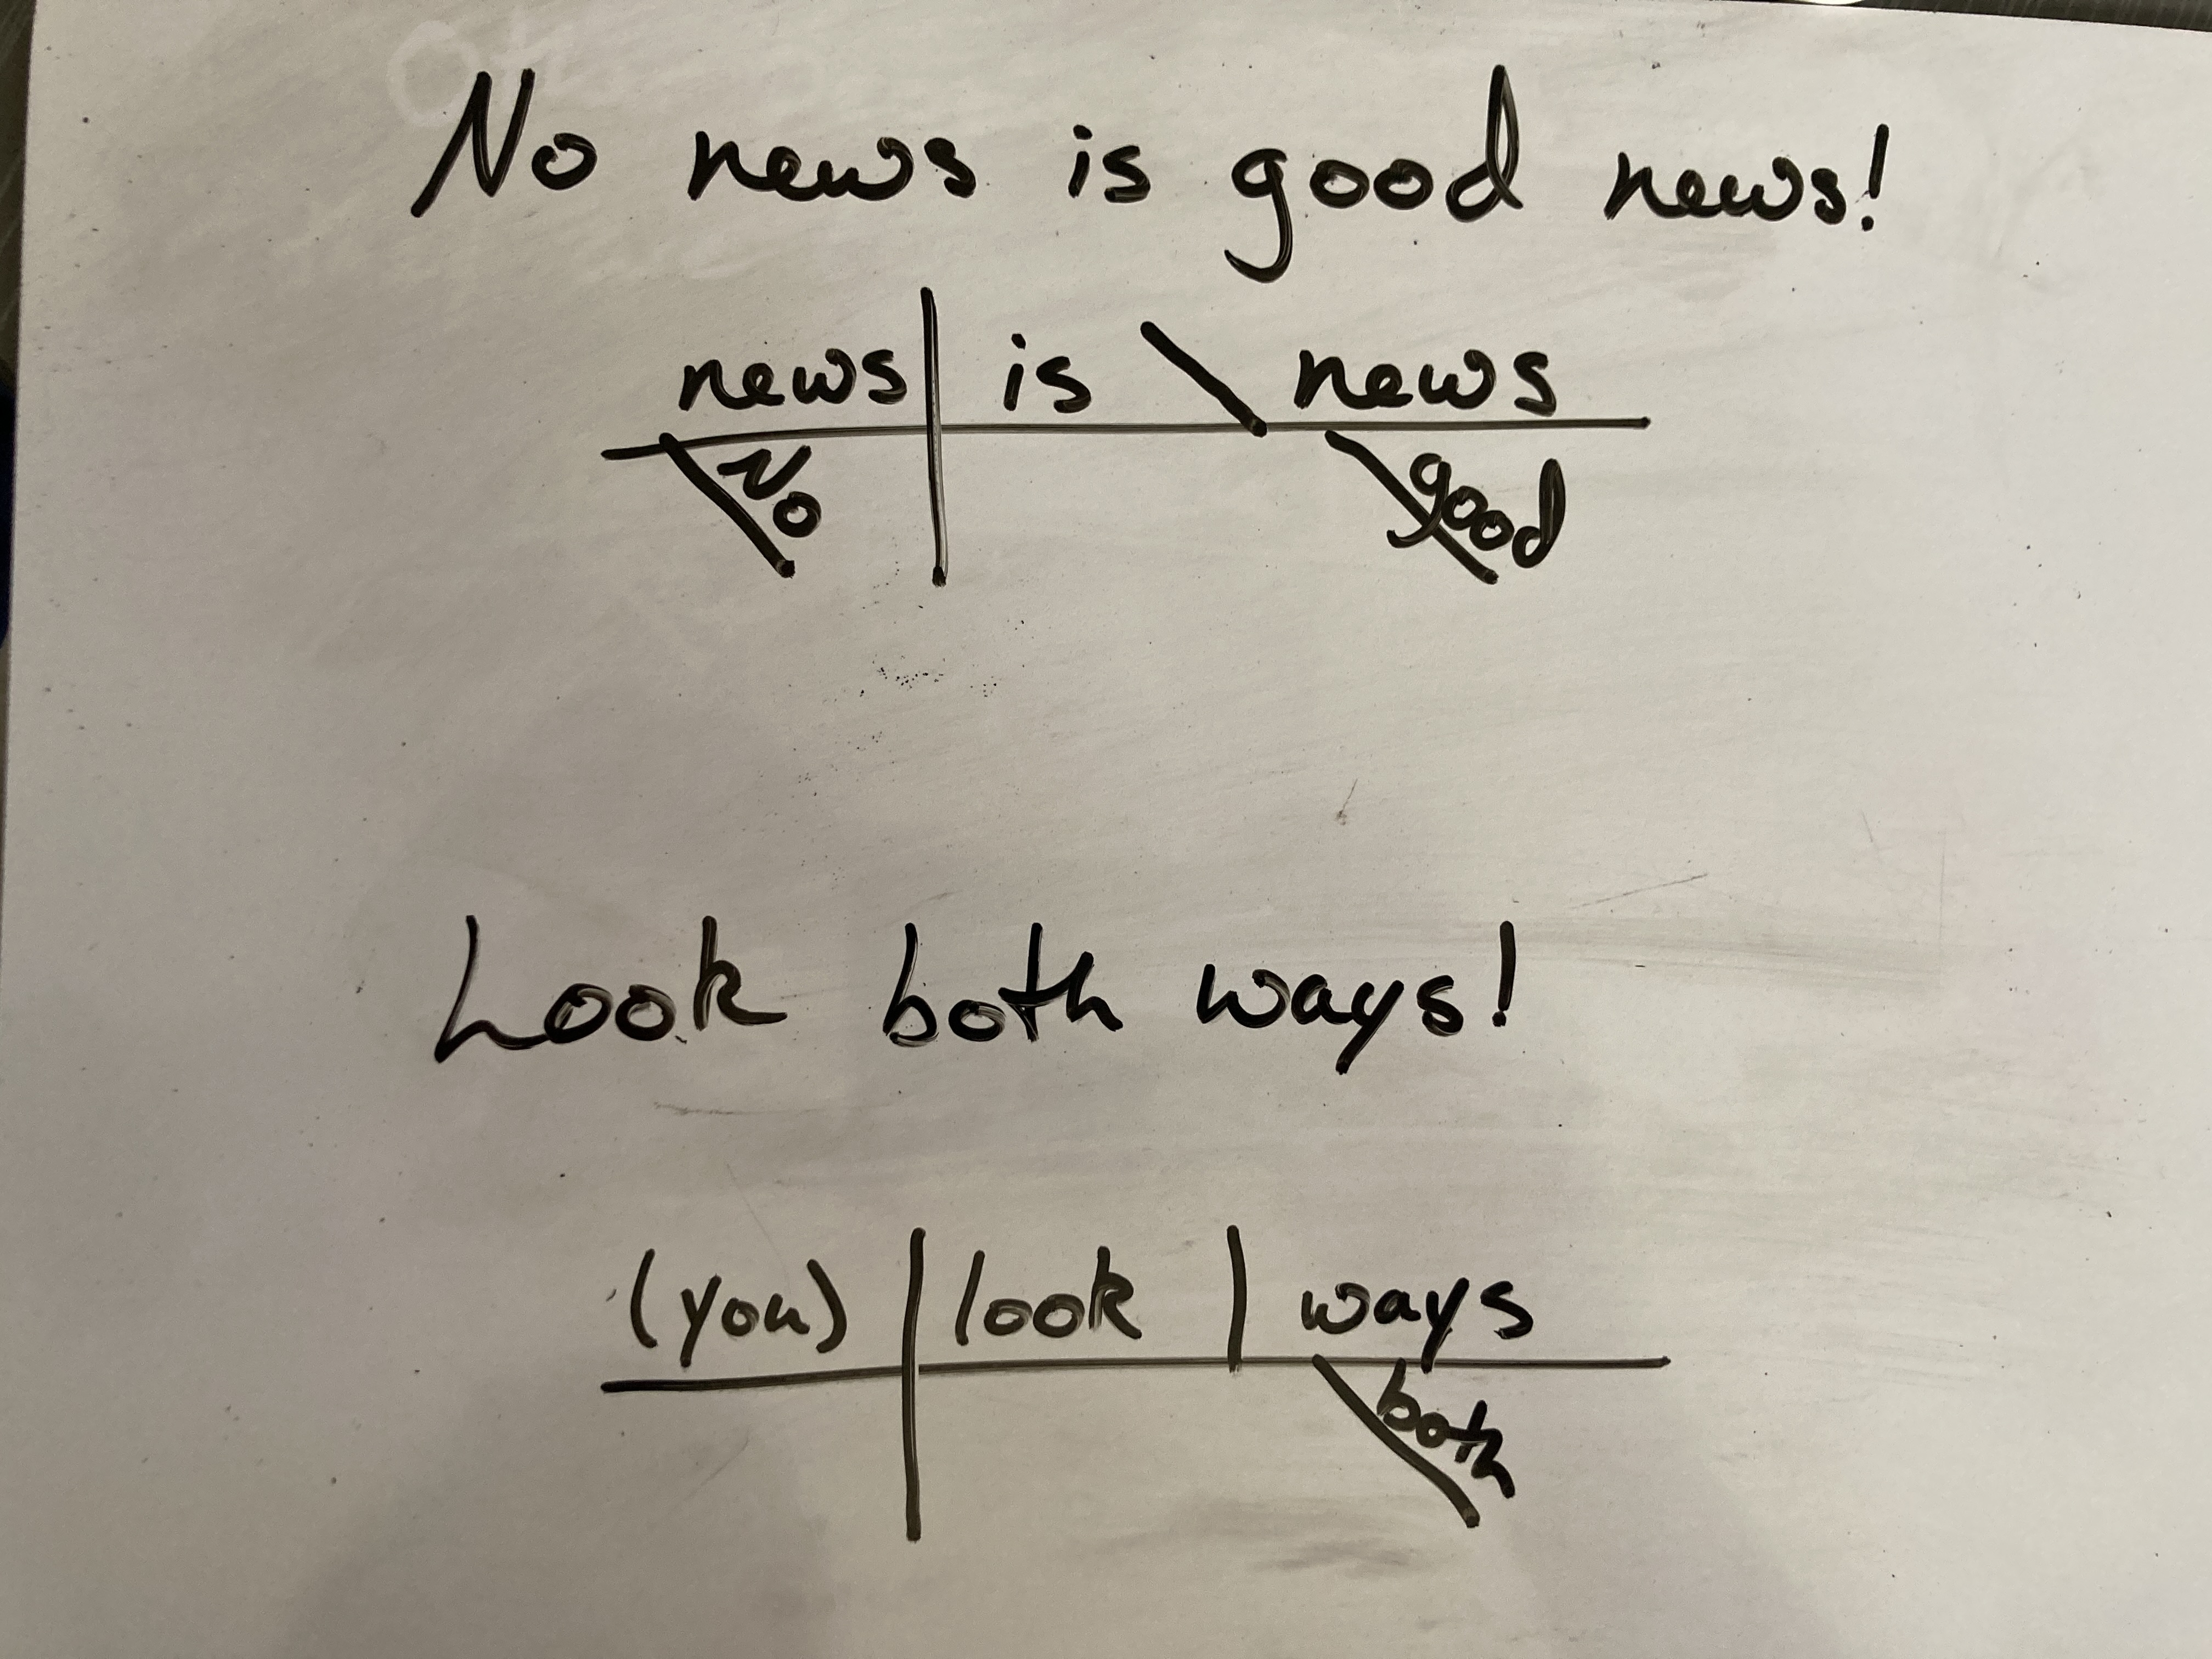 No news is good news!
news is news
No good
Look both ways!
(you) look ways
both